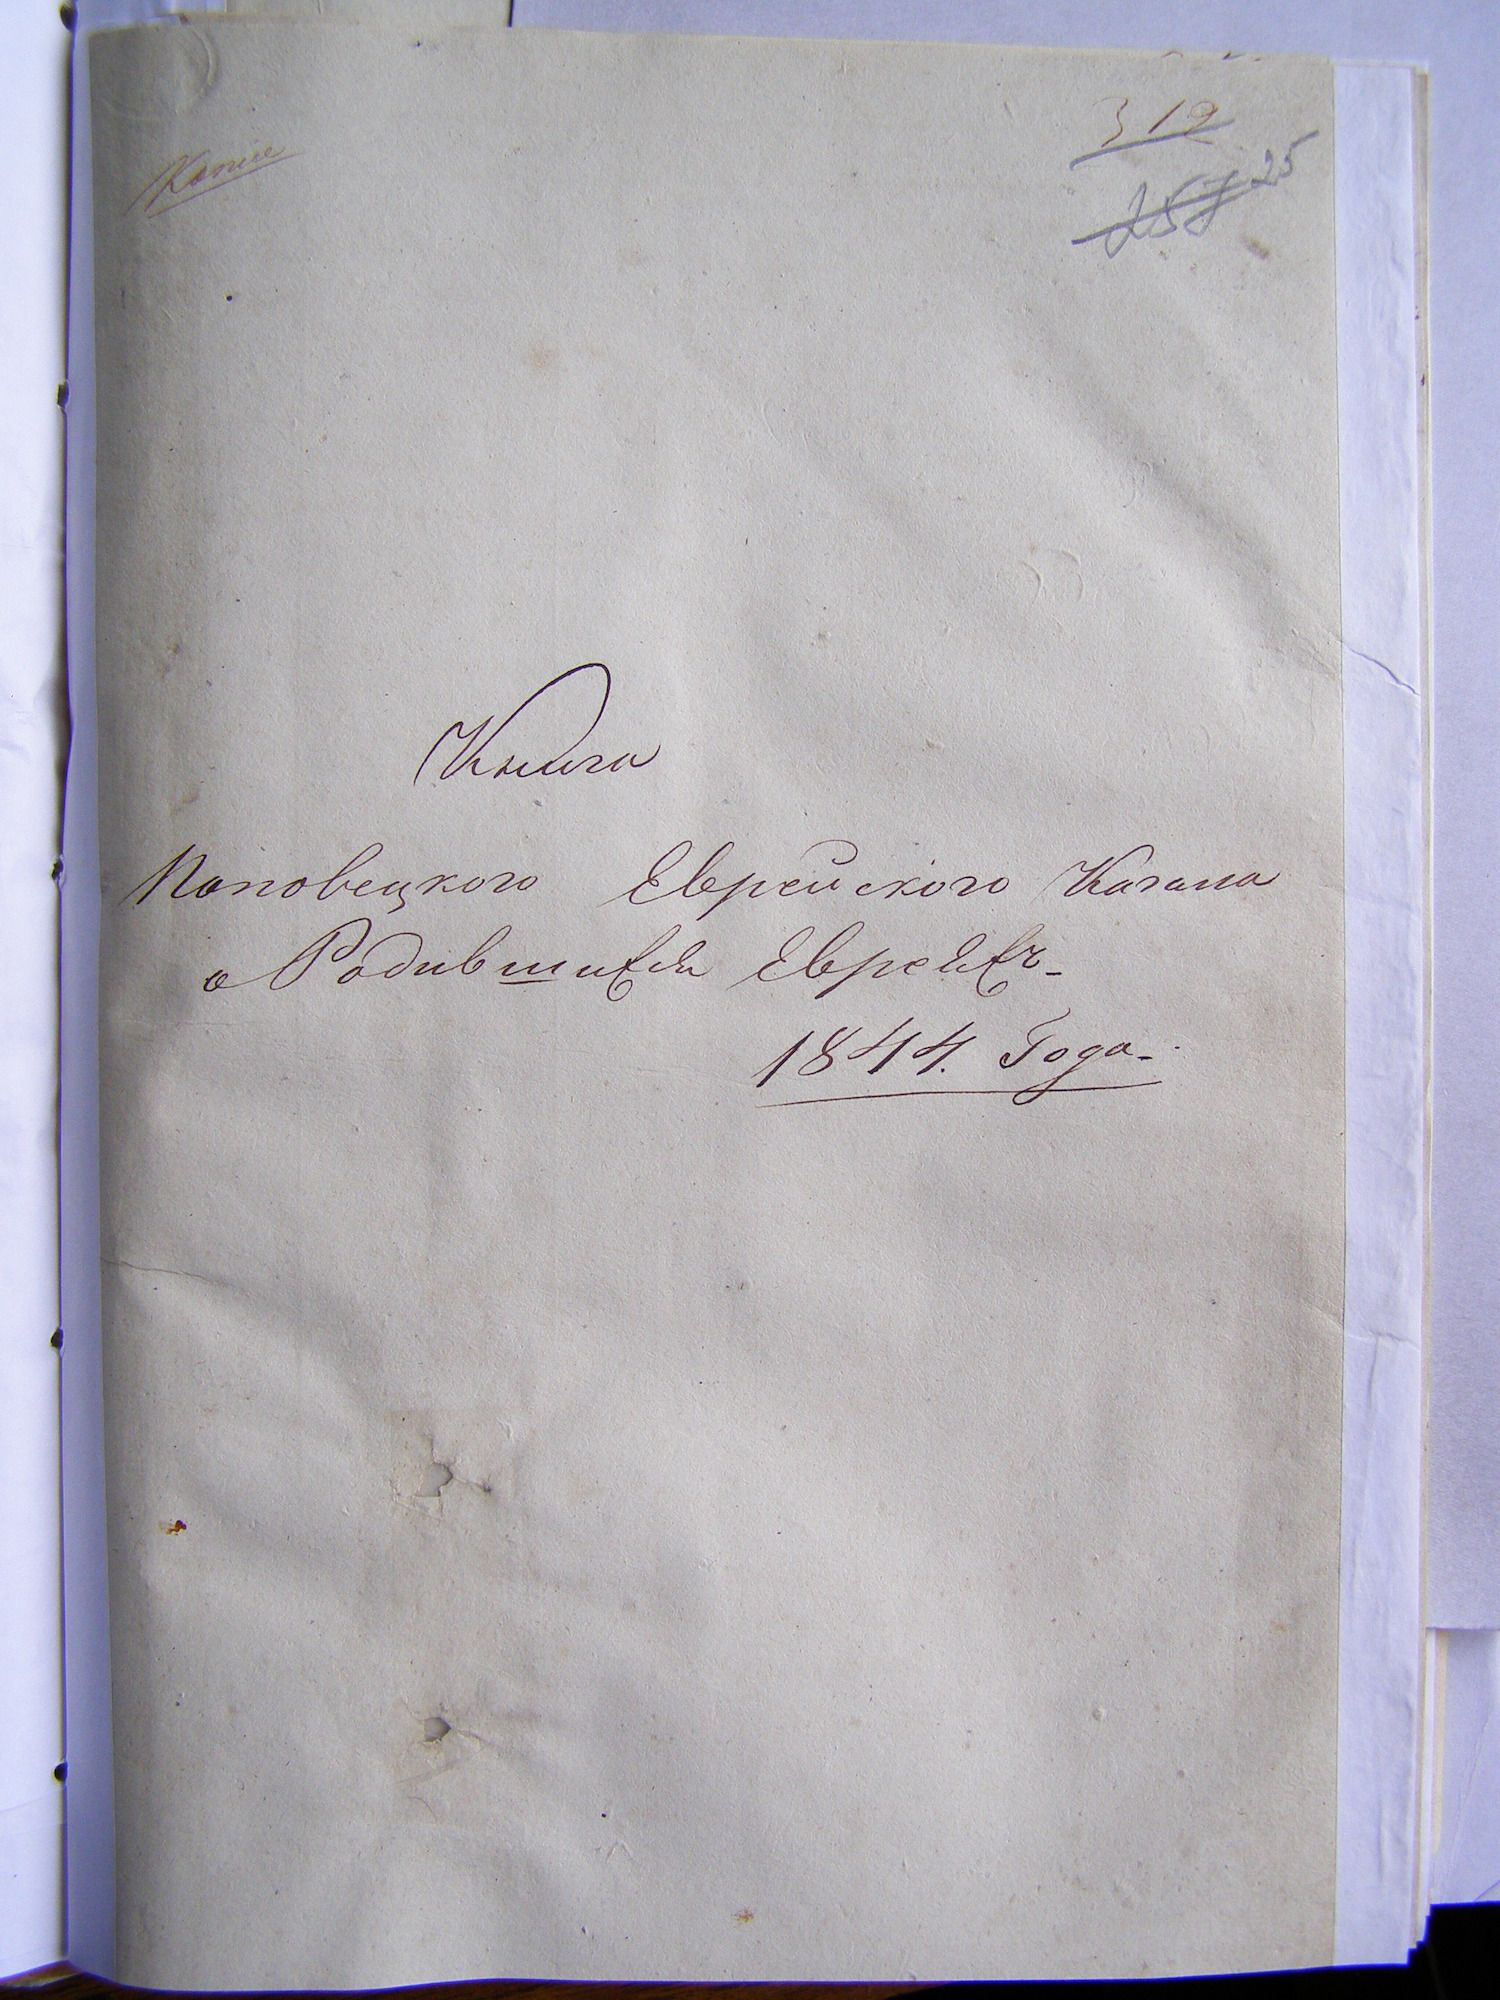 Копие
319
257 25
Книга
Паповецкого Еврейского Кагала
о Родившихся Евреехъ
1844. Года.